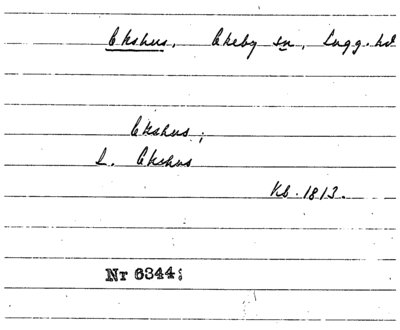 Ekshus, Ekeby sn, Lagg. hd
Ekshus;
L. Ekshus
Kb. 1813.
Nr 6344: